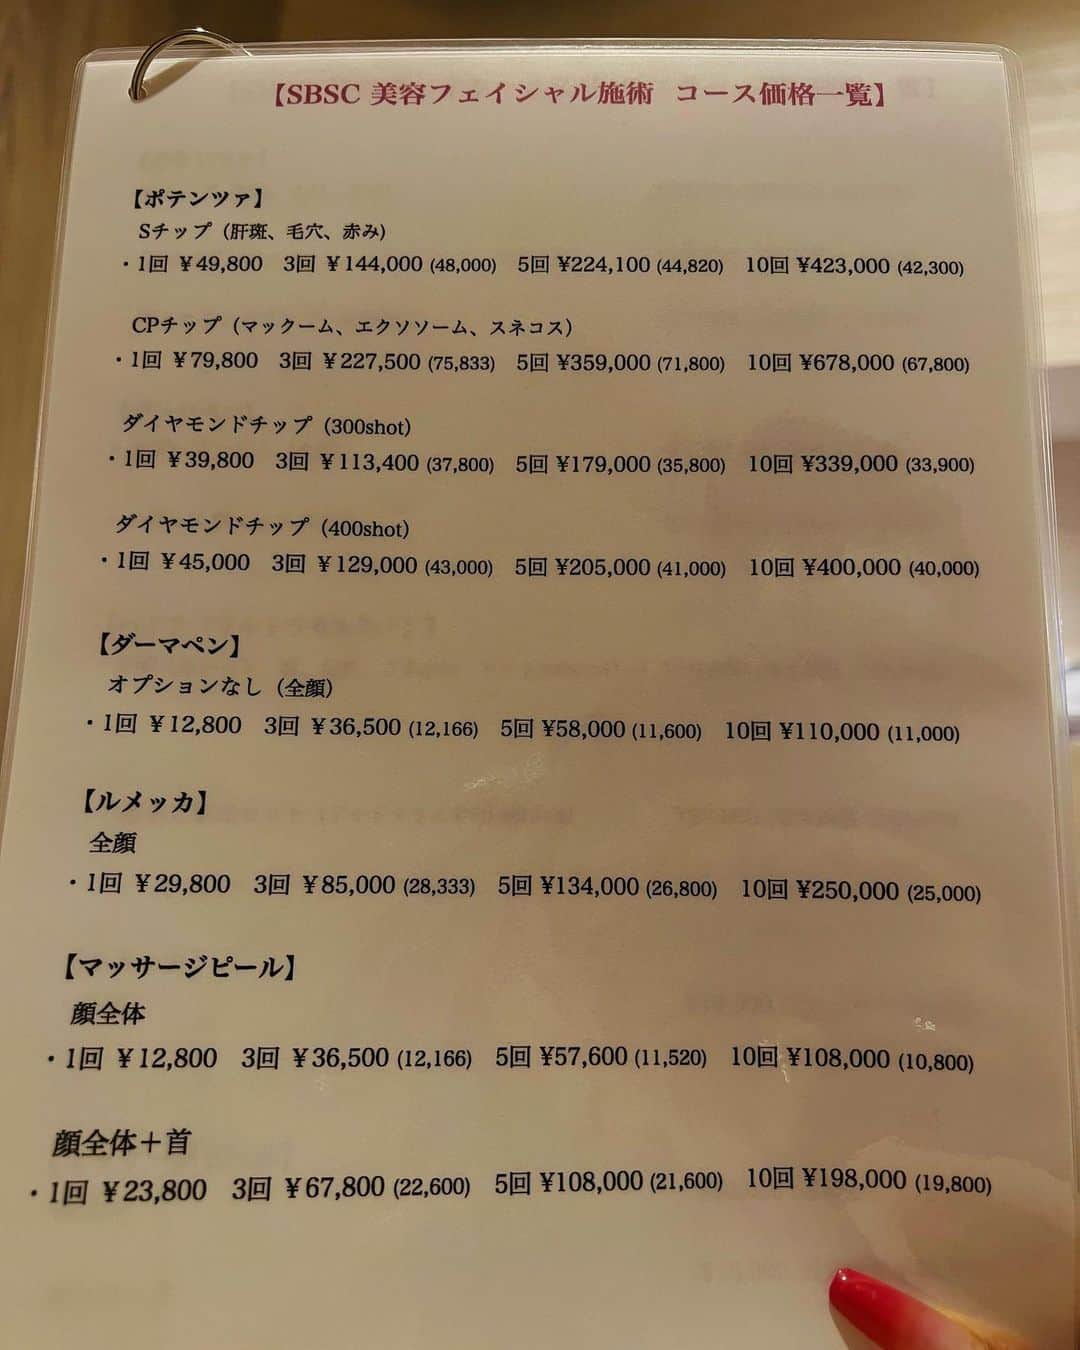 【SBSC 美容フェイシャル施術 コース価格一覧】
【ポテンツァ】
Sチップ（肝斑、毛穴、赤み）
・1回 ￥49,800 3回 ￥144,000 (48,000) 5回 ¥224,100 (44,820) 10回 ¥423,000 (42,300)
CPチップ（マックーム、エクソソーム、スネコス）
・1回 ￥79,800 3回 ￥227,500 (75,833) 5回 ¥359,000 (71,800) 10回 ¥678,000 (67,800)
ダイヤモンドチップ（300shot）
・1回 ￥39,800 3回 ￥113,400 (37,800) 5回 ¥179,000 (35,800) 10回 ¥339,000 (33,900)
ダイヤモンドチップ（400shot）
・1回 ￥45,000 3回 ￥129,000 (43,000) 5回 ¥205,000 (41,000) 10回 ¥400,000 (40,000)
【ダーマペン】
オプションなし（全顔）
・1回 ￥12,800 3回 ￥36,500 (12,166) 5回 ¥58,000 (11,600) 10回 ¥110,000 (11,000)
【ルメッカ】
全顔
・1回 ￥29,800 3回 ￥85,000 (28,333) 5回 ¥134,000 (26,800) 10回 ¥250,000 (25,000)
【マッサージピール】
顔全体
・1回 ￥12,800 3回 ￥36,500 (12,166) 5回 ¥57,600 (11,520) 10回 ¥108,000 (10,800)
顔全体＋首
・1回 ￥23,800 3回 ￥67,800 (22,600) 5回 ¥108,000 (21,600) 10回 ¥198,000 (19,800)